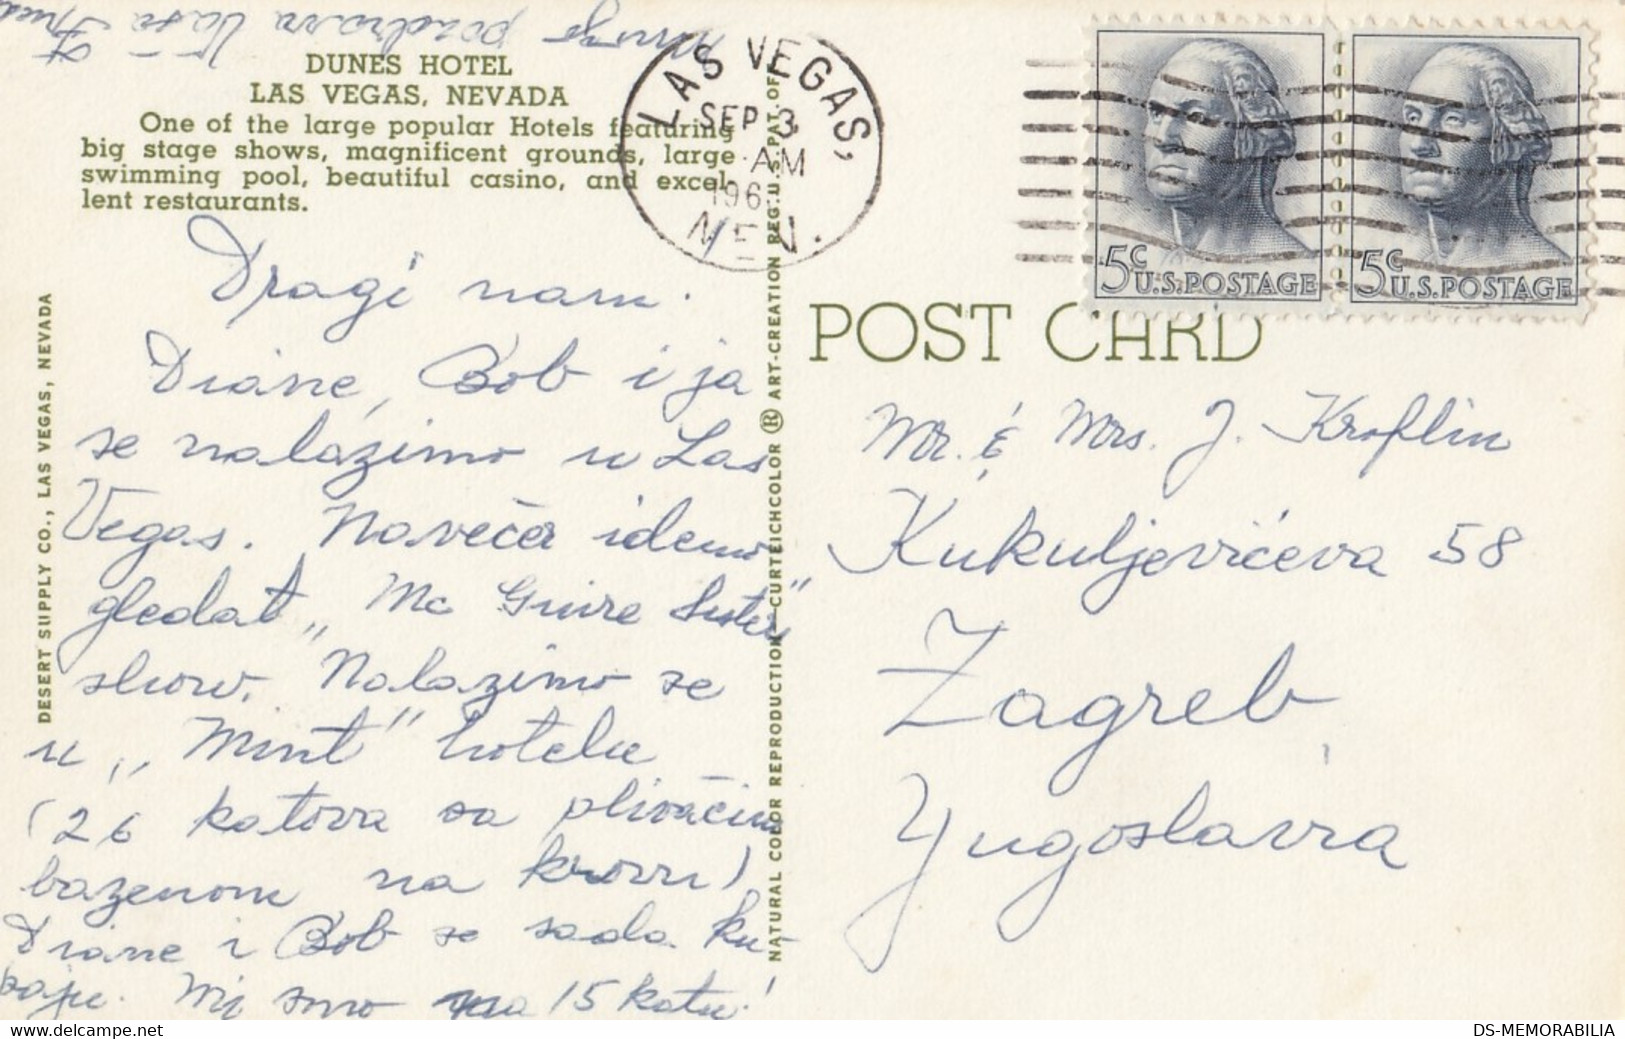 mnogo pozdrava Vaša
DUNES HOTEL
LAS VEGAS, NEVADA
One of the large popular Hotels featuring
big stage shows, magnificent grounds, large
swimming pool, beautiful casino, and excel-
lent restaurants.
Dragi nam.
Diane, Bob i ja
se nalazimo u Las
Vegas. Navečer idemo
gledat „Mc Guire Sisters"
show. Nalazimo se
u „Mint" hotelu
(26 katova sa plivaćim
bazenom na krovu)
Diane i Bob se sada ku-
paju. Mi smo na 15 katu!
DESERT SUPPLY CO., LAS VEGAS, NEVADA
NATURAL COLOR REPRODUCTION—CURTEICHCOLOR ® ART-CREATION REG. U.S. PAT. OF
LAS VEGAS,
SEP 3
AM
196
NEV.
5c U.S. POSTAGE
5c U.S. POSTAGE
POST CARD
Mr. & Mrs. J. Kroflin
Kukuljevićeva 58
Zagreb
Yugoslavia
DS-MEMORABILIA